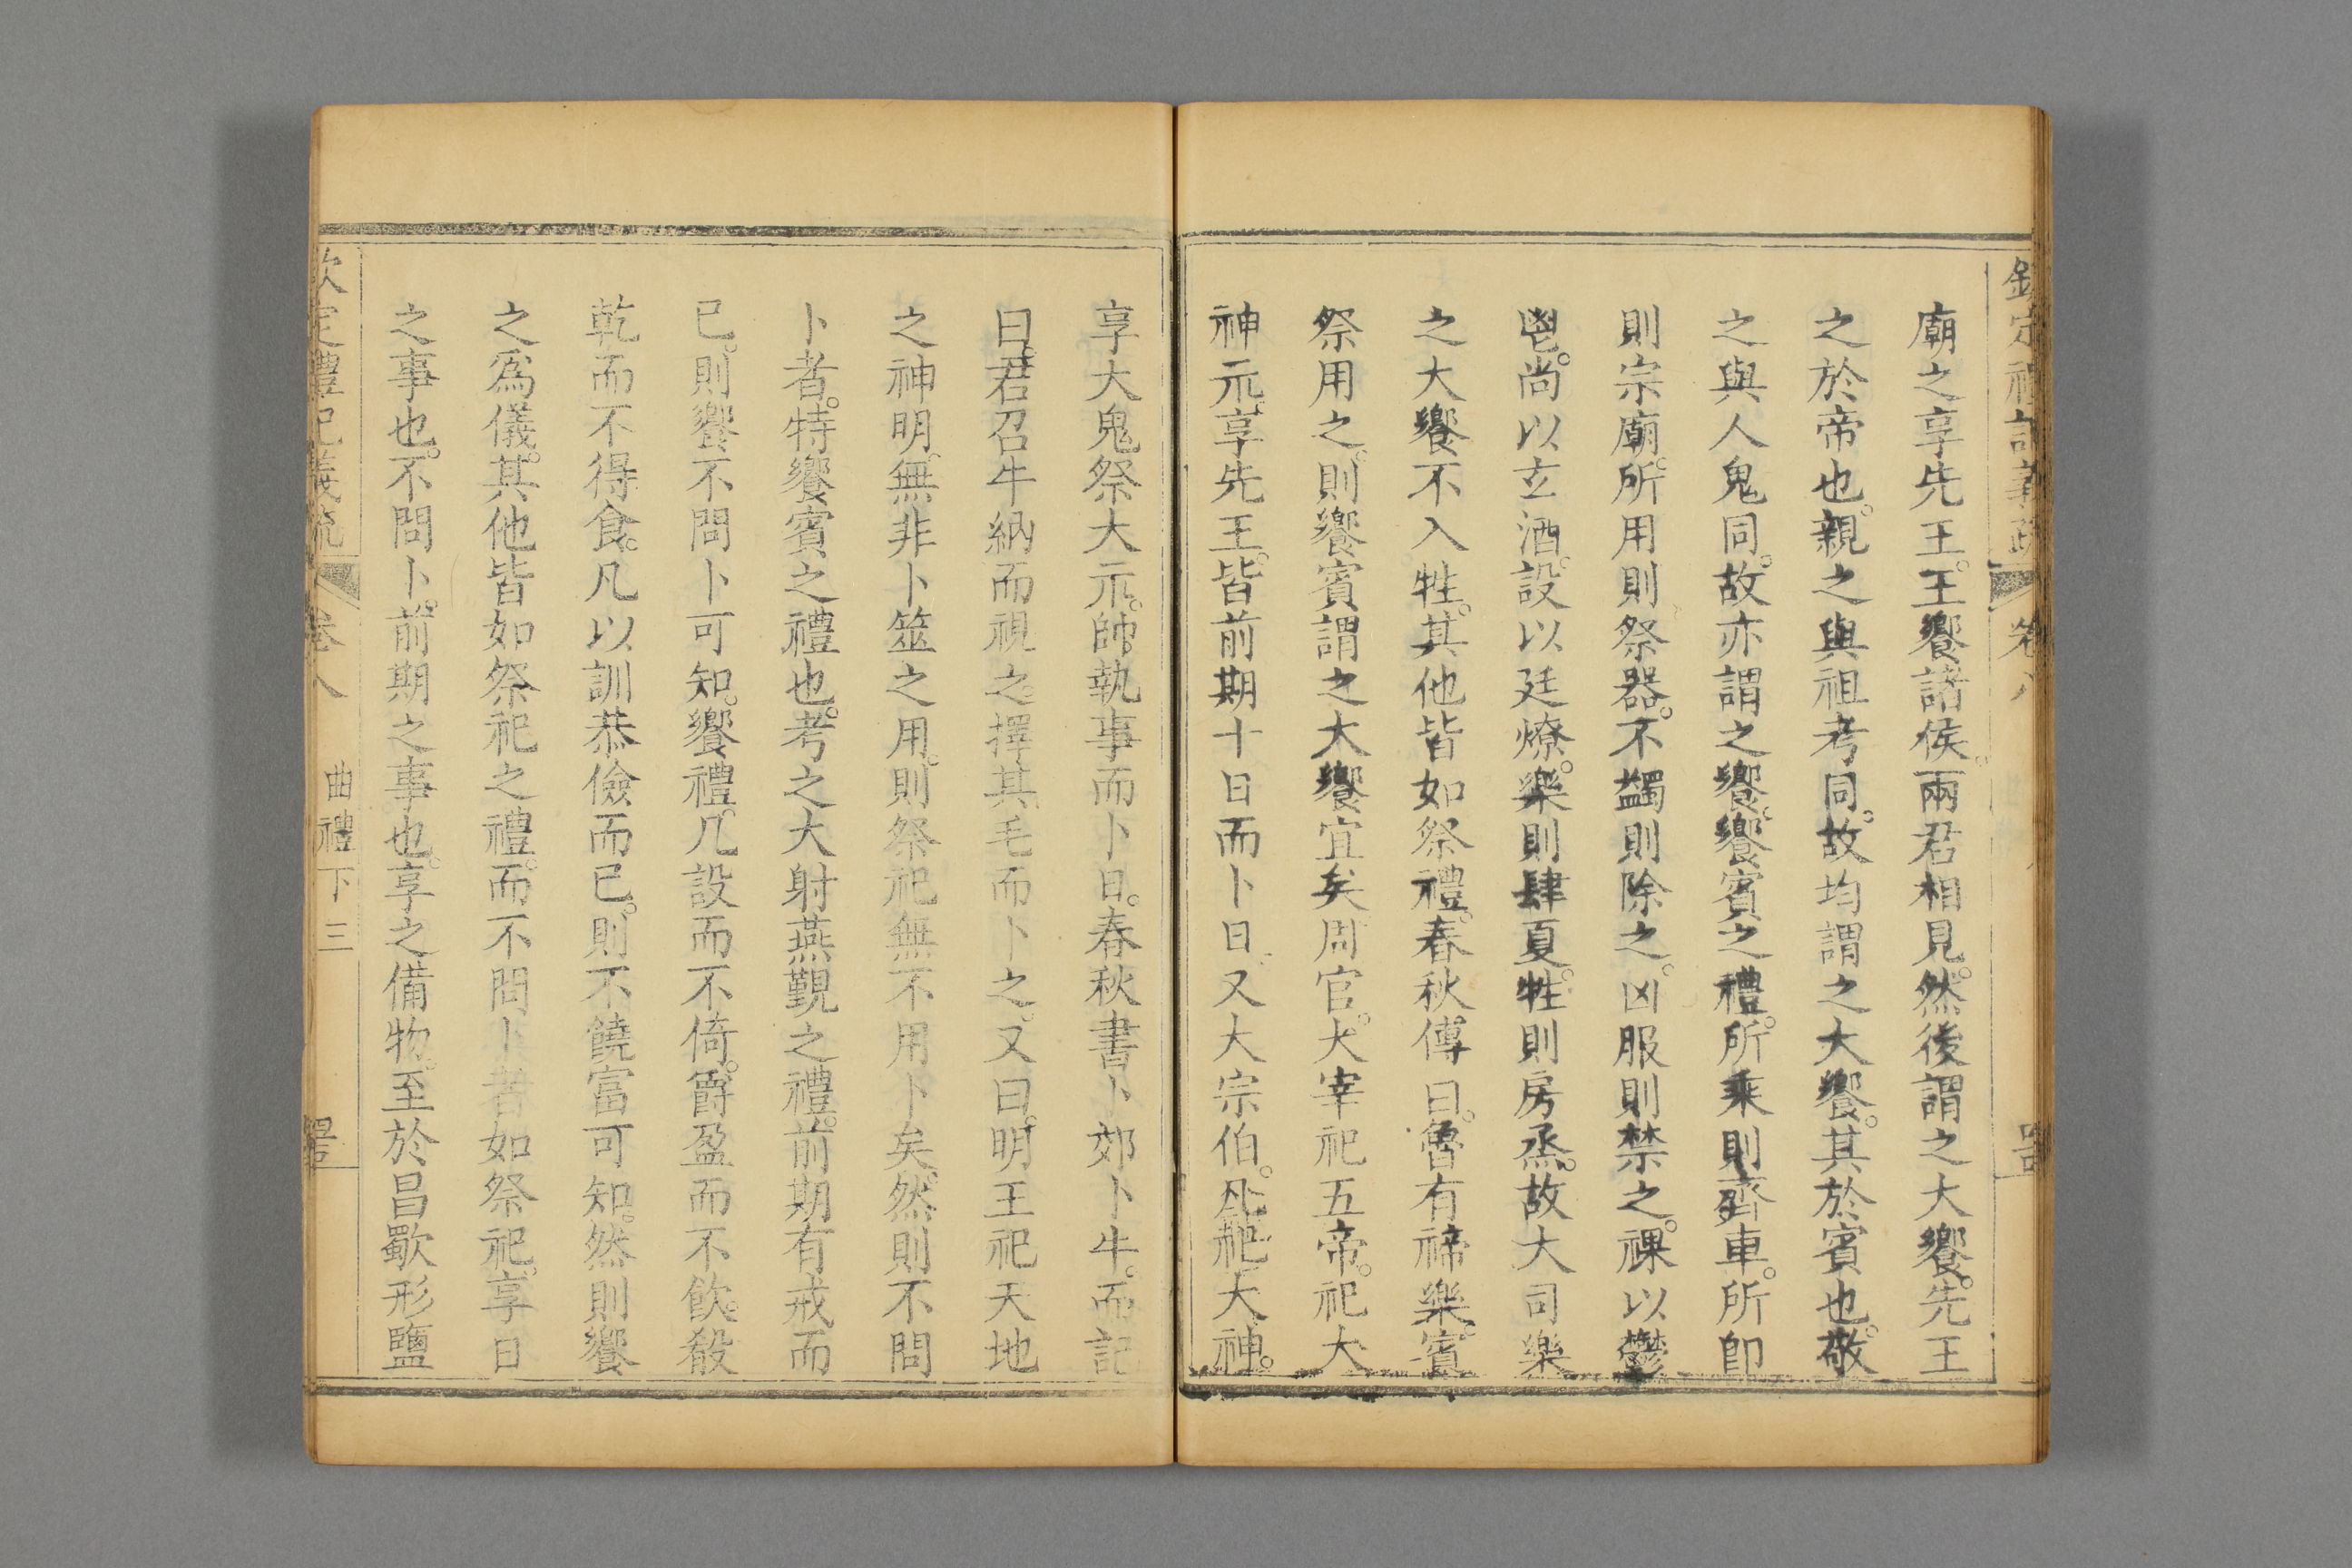 廟之享先王。王饗諸侯。兩君相見。然後謂之大饗。先王
之於帝也。親之與祖考同。故均謂之大饗。其於賓也。敬
之與人鬼同。故亦謂之饗。饗賓之禮。所乘則齊車。所卽
則宗廟。所用則祭器。不蠲則除之。凶服則禁之。祼以鬱
鬯。尚以玄酒。設以廷燎。樂則肆夏。牲則房烝。故大司樂
之大饗不入牲。其他皆如祭禮。春秋傳曰。魯有禘樂。賓
祭用之。則饗賓謂之大饗宜矣。周官。大宰祀五帝。祀大
神示。享先王。皆前期十日而卜日。又大宗伯。凡祀大神。
享大鬼祭大示。帥執事而卜日。春秋書卜郊卜牛。而記
曰。君召牛納而視之。擇其毛而卜之。又曰。明王祀天地
之神明。無非卜筮之用。則祭祀無不用卜矣。然則不問
卜者。特饗賓之禮也。考之大射燕覲之禮。前期有戒而
已。則饗不問卜可知。饗禮。几設而不倚。爵盈而不飲。殽
乾而不得食。凡以訓恭儉而已。則不饒富可知。然則饗
之爲儀。其他皆如祭祀之禮。而不問卜者如祭祀。享日
之事也。不問卜。前期之事也。享之備物。至於昌歜形鹽
欽定禮記義疏
卷八
曲禮下三